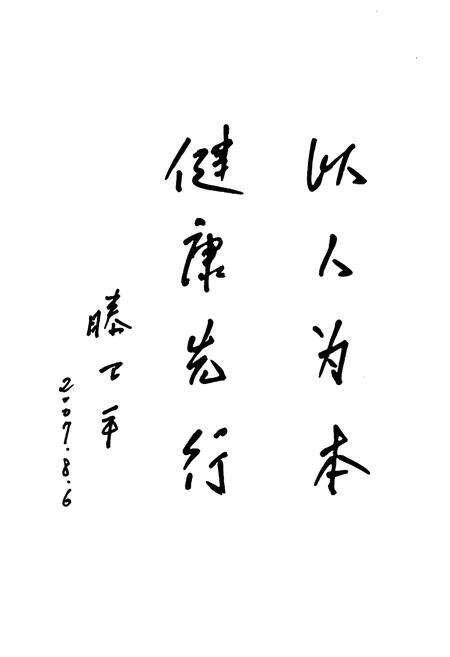 以人为本
健康先行
滕
2007.8.6